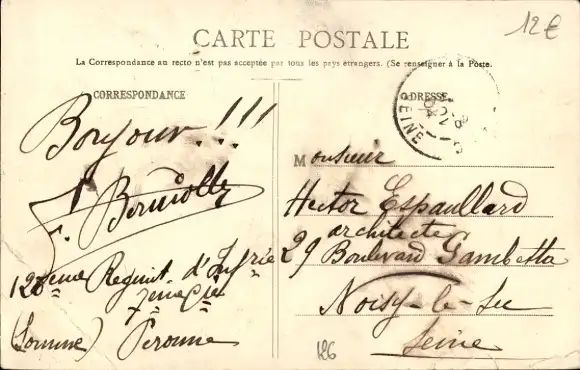 12€
CARTE POSTALE
La Correspondance au recto n'est pas acceptée par tous les pays étrangers. (Se renseigner à la Poste.
CORRESPONDANCE
Bonjour..!!!
F.
120ème Regmit d'Infrie
7ème Cie
(Somme) Peronne
ADRESSE
SEINE
Monsieur
Hector Espaullard
architecte
29 Boulevard Gambetta
Noisy-le-Sec
Seine
126